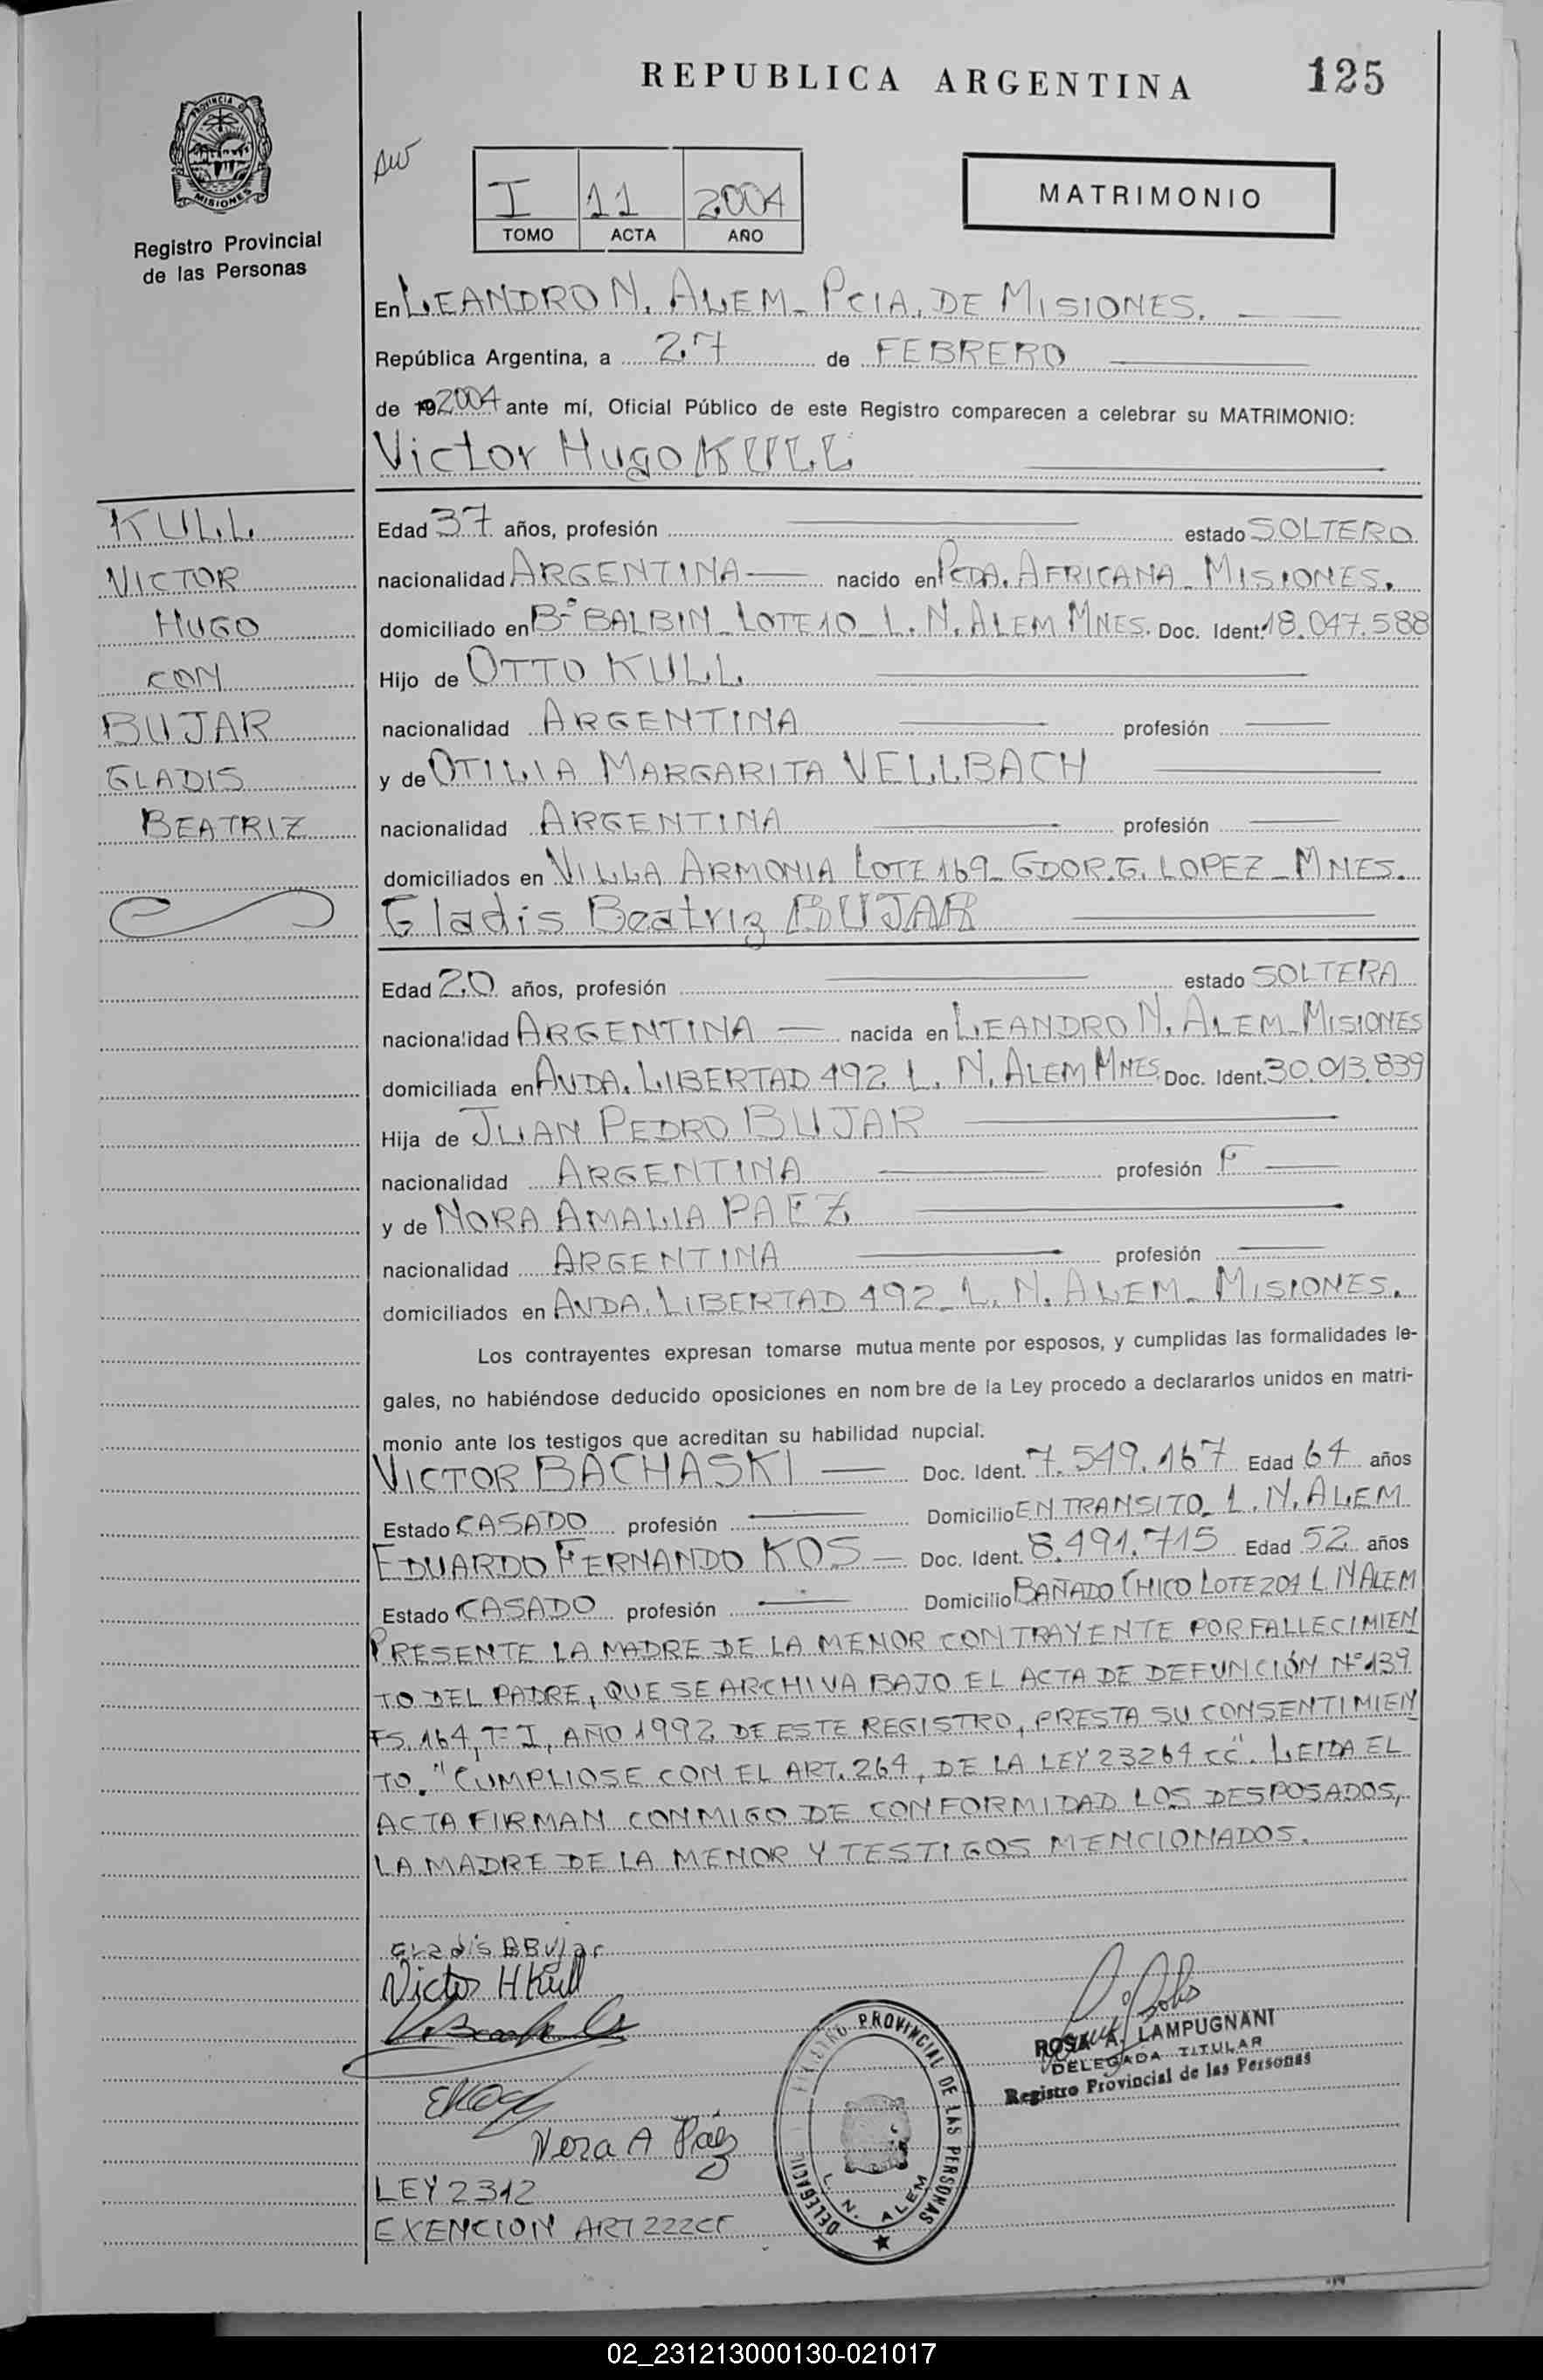 REPUBLICA ARGENTINA
125
PROVINCIA DE
MISIONES
Registro Provincial
de las Personas
I 11 2004
TOMO ACTA AÑO
MATRIMONIO
En LEANDRO N. ALEM - PCIA. DE MISIONES.
República Argentina, a 27 de FEBRERO
de 192004 ante mí, Oficial Público de este Registro comparecen a celebrar su MATRIMONIO:
Victor Hugo KULL
KULL
VICTOR
HUGO
CON
BUJAR
GLADIS
BEATRIZ
Edad 37 años, profesión estado SOLTERO
nacionalidad ARGENTINA nacido en PCDA. AFRICANA - MISIONES.
domiciliado en Bº BALBIN - LOTE 10 - L. N. ALEM MNES. Doc. Ident. 18.047.588
Hijo de OTTO KULL
nacionalidad ARGENTINA profesión
y de OTILIA MARGARITA VELLBACH
nacionalidad ARGENTINA profesión
domiciliados en VILLA ARMONIA LOTE 169 - GDOR. G. LOPEZ - MNES.
Gladis Beatriz BUJAR
Edad 20 años, profesión estado SOLTERA
nacionalidad ARGENTINA nacida en LEANDRO N. ALEM - MISIONES
domiciliada en AVDA. LIBERTAD 492 L. N. ALEM MNES. Doc. Ident. 30.013.839
Hija de JUAN PEDRO BUJAR
nacionalidad ARGENTINA profesión F
y de NORA AMALIA PAEZ
nacionalidad ARGENTINA profesión
domiciliados en AVDA. LIBERTAD 492 - L. N. ALEM - MISIONES.
Los contrayentes expresan tomarse mutua mente por esposos, y cumplidas las formalidades le-
gales, no habiéndose deducido oposiciones en nom bre de la Ley procedo a declararlos unidos en matri-
monio ante los testigos que acreditan su habilidad nupcial.
VICTOR BACHASKI Doc. Ident. 7.549.167 Edad 64 años
Estado CASADO profesión Domicilio EN TRANSITO - L. N. ALEM
EDUARDO FERNANDO KOS Doc. Ident. 8.491.715 Edad 52 años
Estado CASADO profesión Domicilio BAÑADO CHICO LOTE 201 L N ALEM
PRESENTE LA MADRE DE LA MENOR CONTRAYENTE POR FALLECIMIEN
TO DEL PADRE, QUE SE ARCHIVA BAJO EL ACTA DE DEFUNCIÓN Nº 139
FS. 164, Tº I, AÑO 1992 DE ESTE REGISTRO, PRESTA SU CONSENTIMIEN
TO. "CUMPLIOSE CON EL ART. 264, DE LA LEY 23264 CC". LEIDA EL
ACTA FIRMAN CONMIGO DE CONFORMIDAD LOS DESPOSADOS,
LA MADRE DE LA MENOR Y TESTIGOS MENCIONADOS.
Gladis B Bujar
Victor H Kull
Nora A Páez
ROSA A. LAMPUGNANI
DELEGADA TITULAR
Registro Provincial de las Personas
REGISTRO PROVINCIAL DE LAS PERSONAS
DELEGACION
L. N. ALEM
LEY 2312
EXENCION ART 222CF
02_231213000130-021017